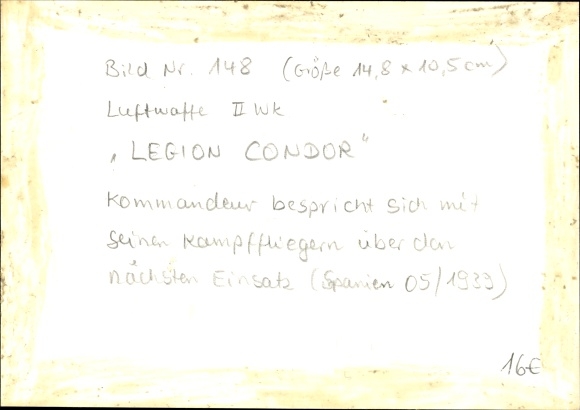 Bild Nr. 148 (Größe 14,8 x 10,5 cm)
Luftwaffe II WK
„LEGION CONDOR“
Kommandeur bespricht sich mit
seinen Kampffliegern über den
nächsten Einsatz (Spanien 05/1939)
16€